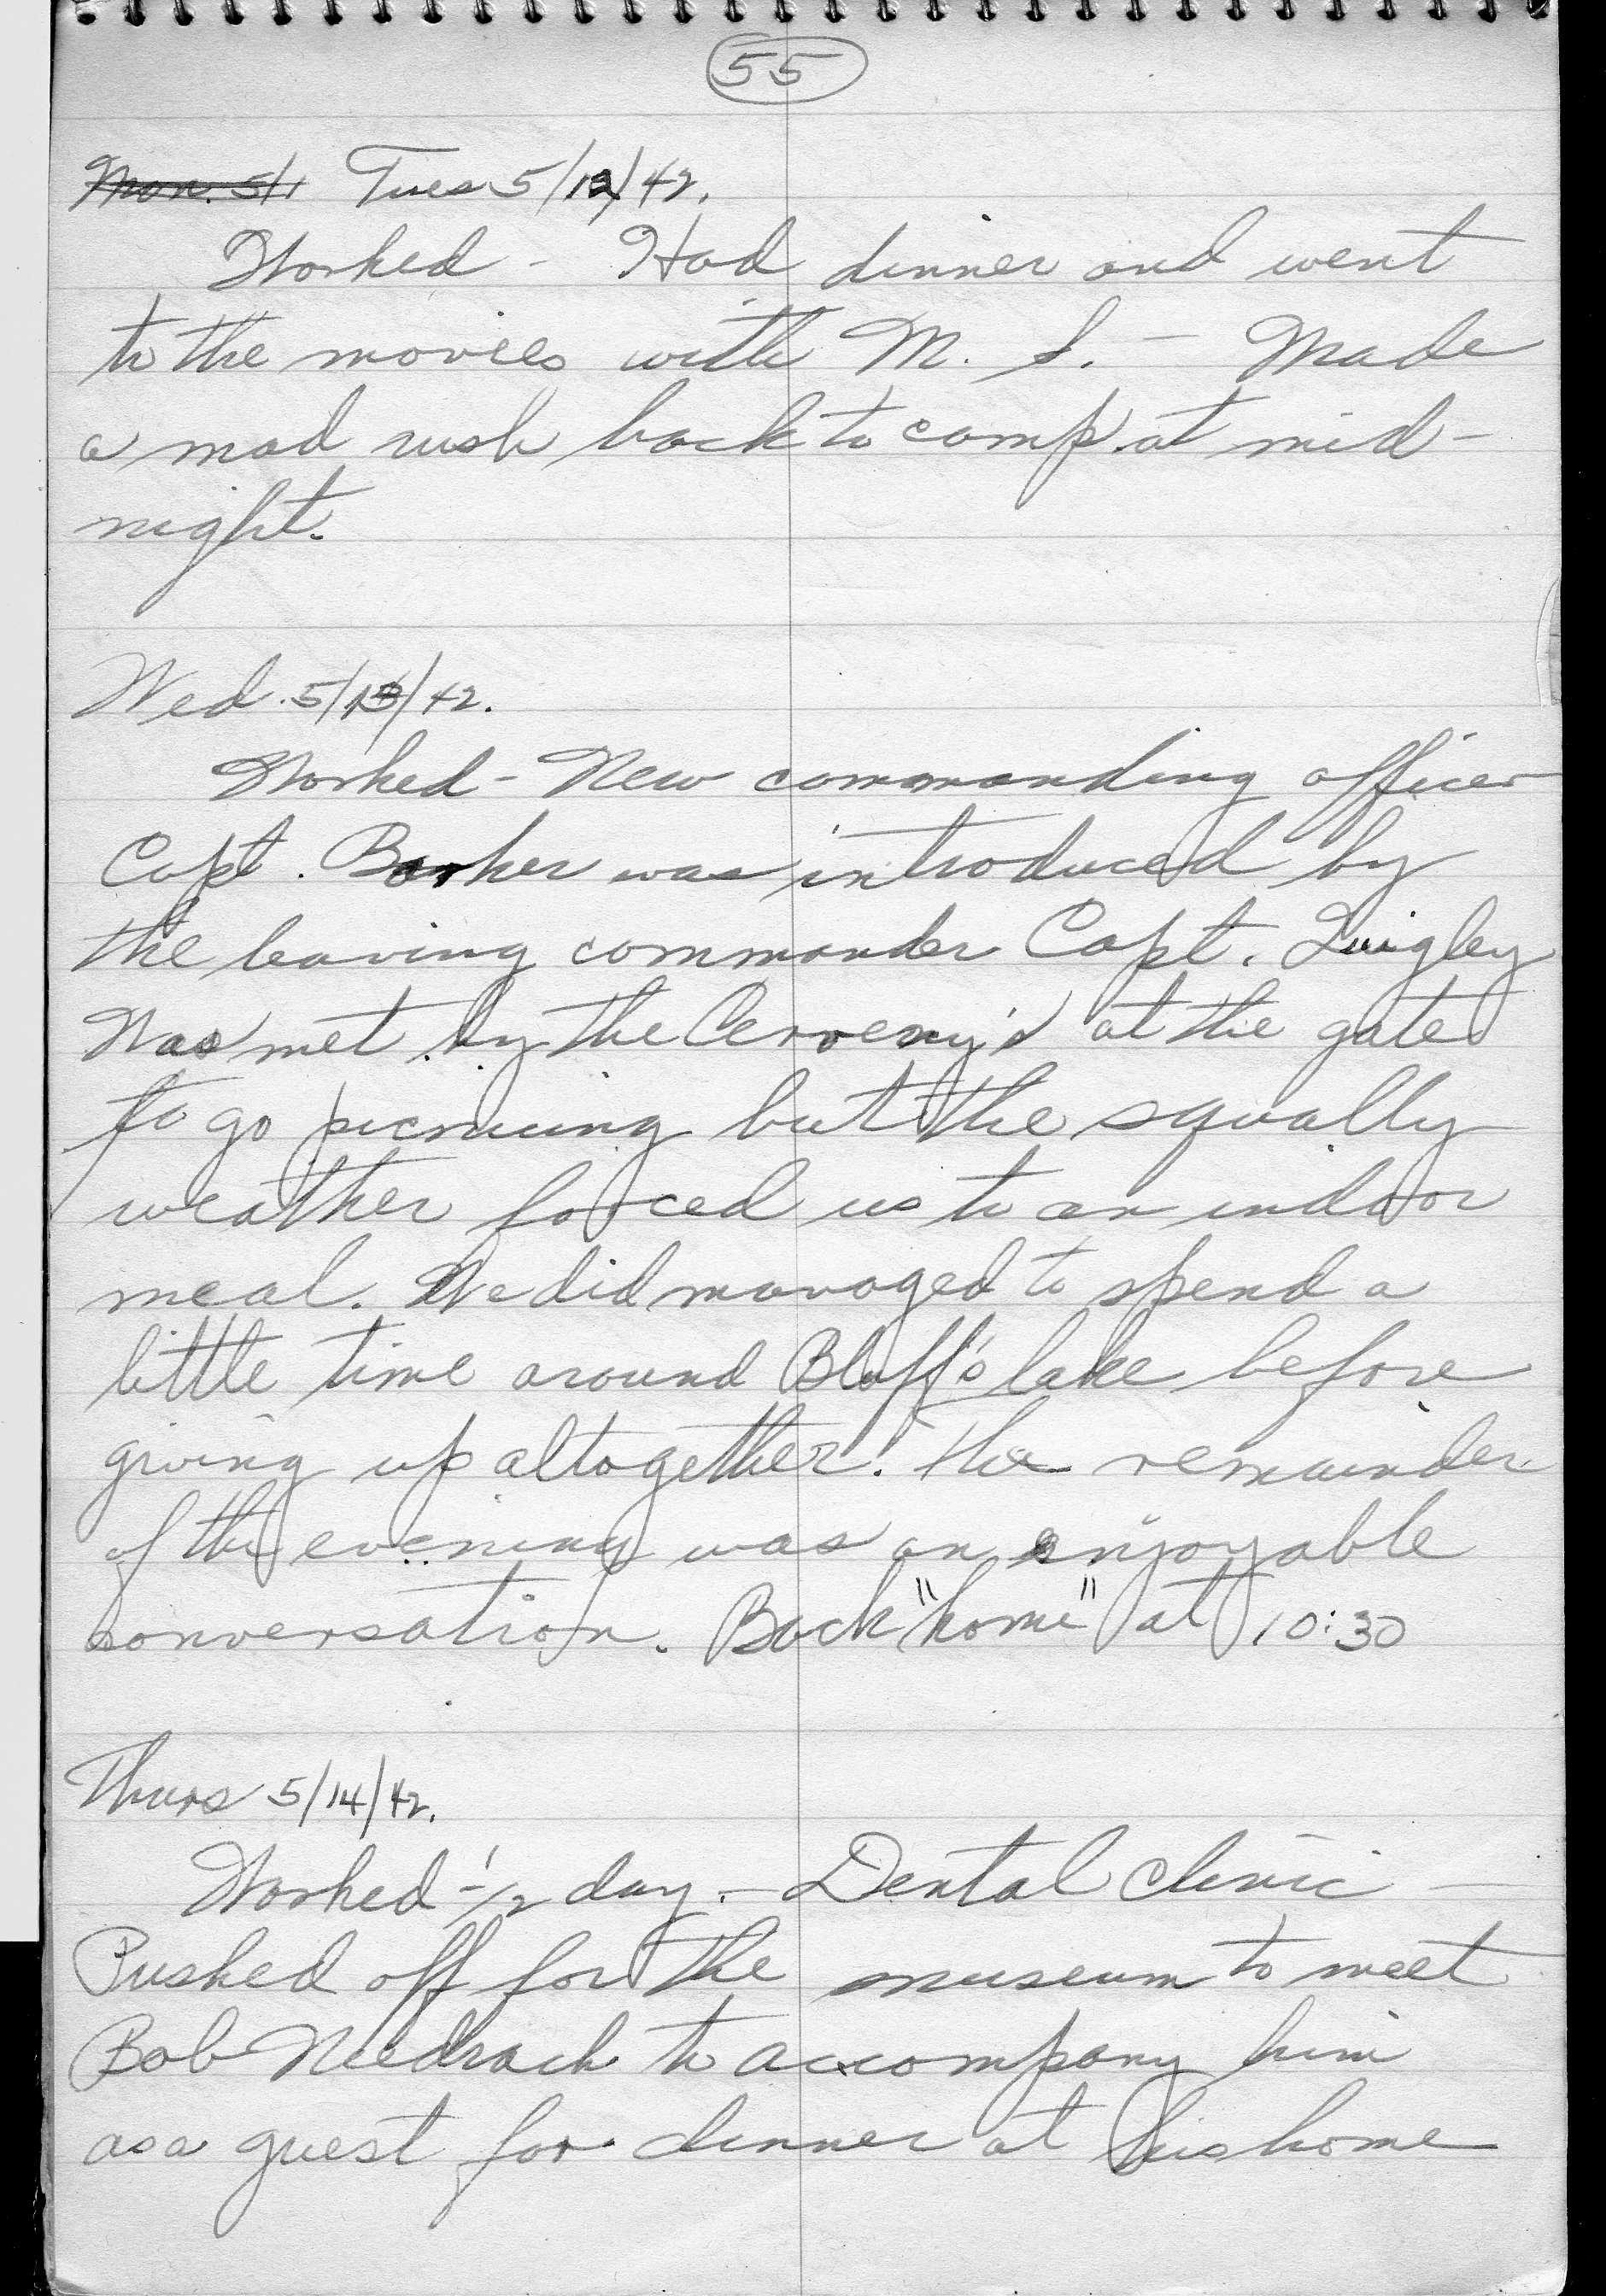 55
Mon. 5/1 Tues 5/12/42.
Worked - Had dinner and went
to the movies with M. S. - Made
a mad rush back to camp at mid-
night.
Wed. 5/13/42.
Worked - New commanding officer
Capt. Barker was introduced by
the leaving commander Capt. Quigley
Was met by the Cerveny's at the gate
to go picnicing but the squally
weather forced us to an indoor
meal. We did managed to spend a
little time around Bluff's lake before
giving up altogether. The remainder
of the evening was an enjoyable
conversation. Back "home" at 10:30
Thurs 5/14/42.
Worked - 1/2 day. - Dental Clinic -
Pushed off for the museum to meet
Bob Niedrach to accompany him
as a guest for dinner at his home